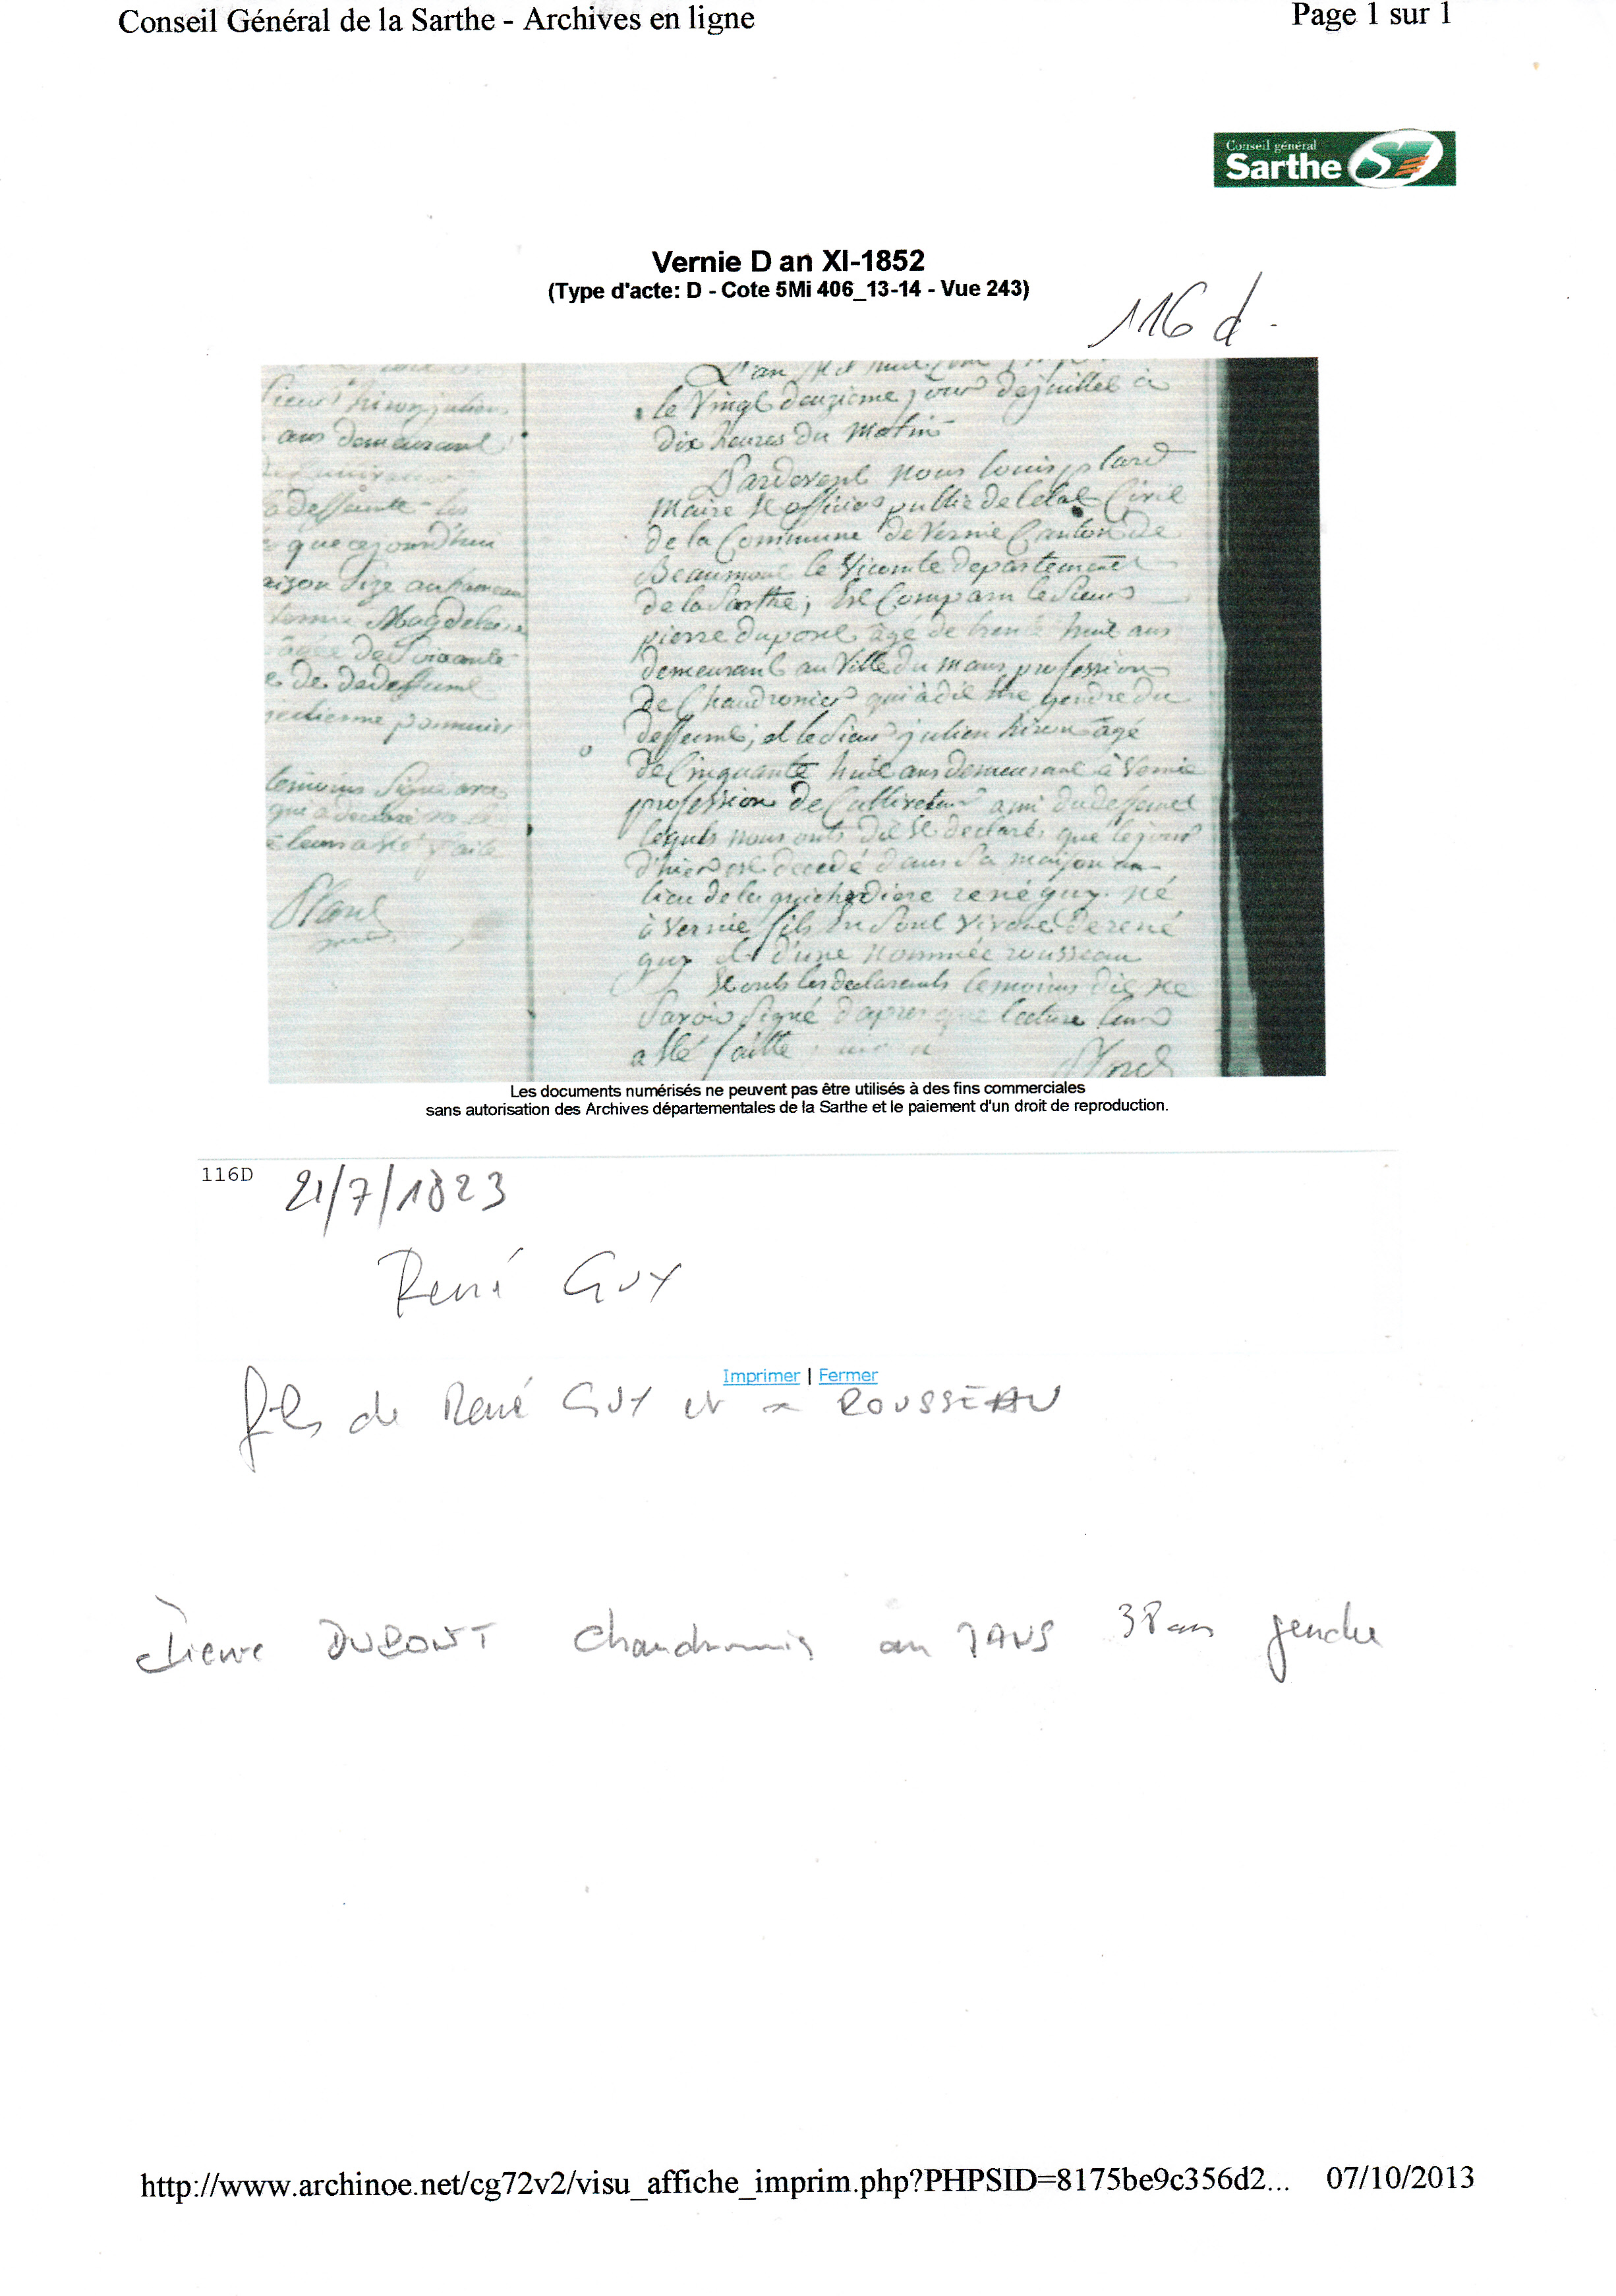 Conseil Général de la Sarthe - Archives en ligne
Page 1 sur 1
Conseil général
Sarthe
Vernie D an XI-1852
(Type d'acte: D - Cote 5Mi 406_13-14 - Vue 243)
116 d.
ans demeurant
a deffunte les
que cejourd'huy
aison size au hameau
femme Magdelaine
âgée de Soixante
e de dedeffunt
julienne pommier
temoins Signé avec
qui a declaré ne
e leur a été faite
Plard
L'an Mil huit Cent
le Vingt deuzieme jour dejuillet à
dix heures du Matin
Pardevent Nous louis plard
Maire et officier public de l'etat Civil
de la Commune de Vernie Canton de
Beaumont le Vicomte departement
de la Sarthe; Est Comparu le Sieur
pierre dupont âgé de trente huit ans
demeurant au Ville du mans profession
de Chaudronier qui à dit être gendre du
deffunt; et le Sieur julien hiron âgé
de Cinquante huit ans demeurant à Vernie
profession de Cultivateur ami du deffunt
lequels nous onts dit et declarés que lejour
d'hier est decedé dans Sa maison au
lieu de la guichardiere rené guy né
à Vernie fils En Sont Vivant de rené
guy et d'une Nommée rousseau
Et onts les declarents temoins dit ne
Savoir Signé d'apres que lecture leur
a été faitte
Plard
Les documents numérisés ne peuvent pas être utilisés à des fins commerciales
sans autorisation des Archives départementales de la Sarthe et le paiement d'un droit de reproduction.
116D
21/7/1823
René GUY
Imprimer | Fermer
fils de René GUY et x ROUSSEAU
Pierre DUPONT Chaudronnier au MANS 38 ans gendre
http://www.archinoe.net/cg72v2/visu_affiche_imprim.php?PHPSID=8175be9c356d2...
07/10/2013